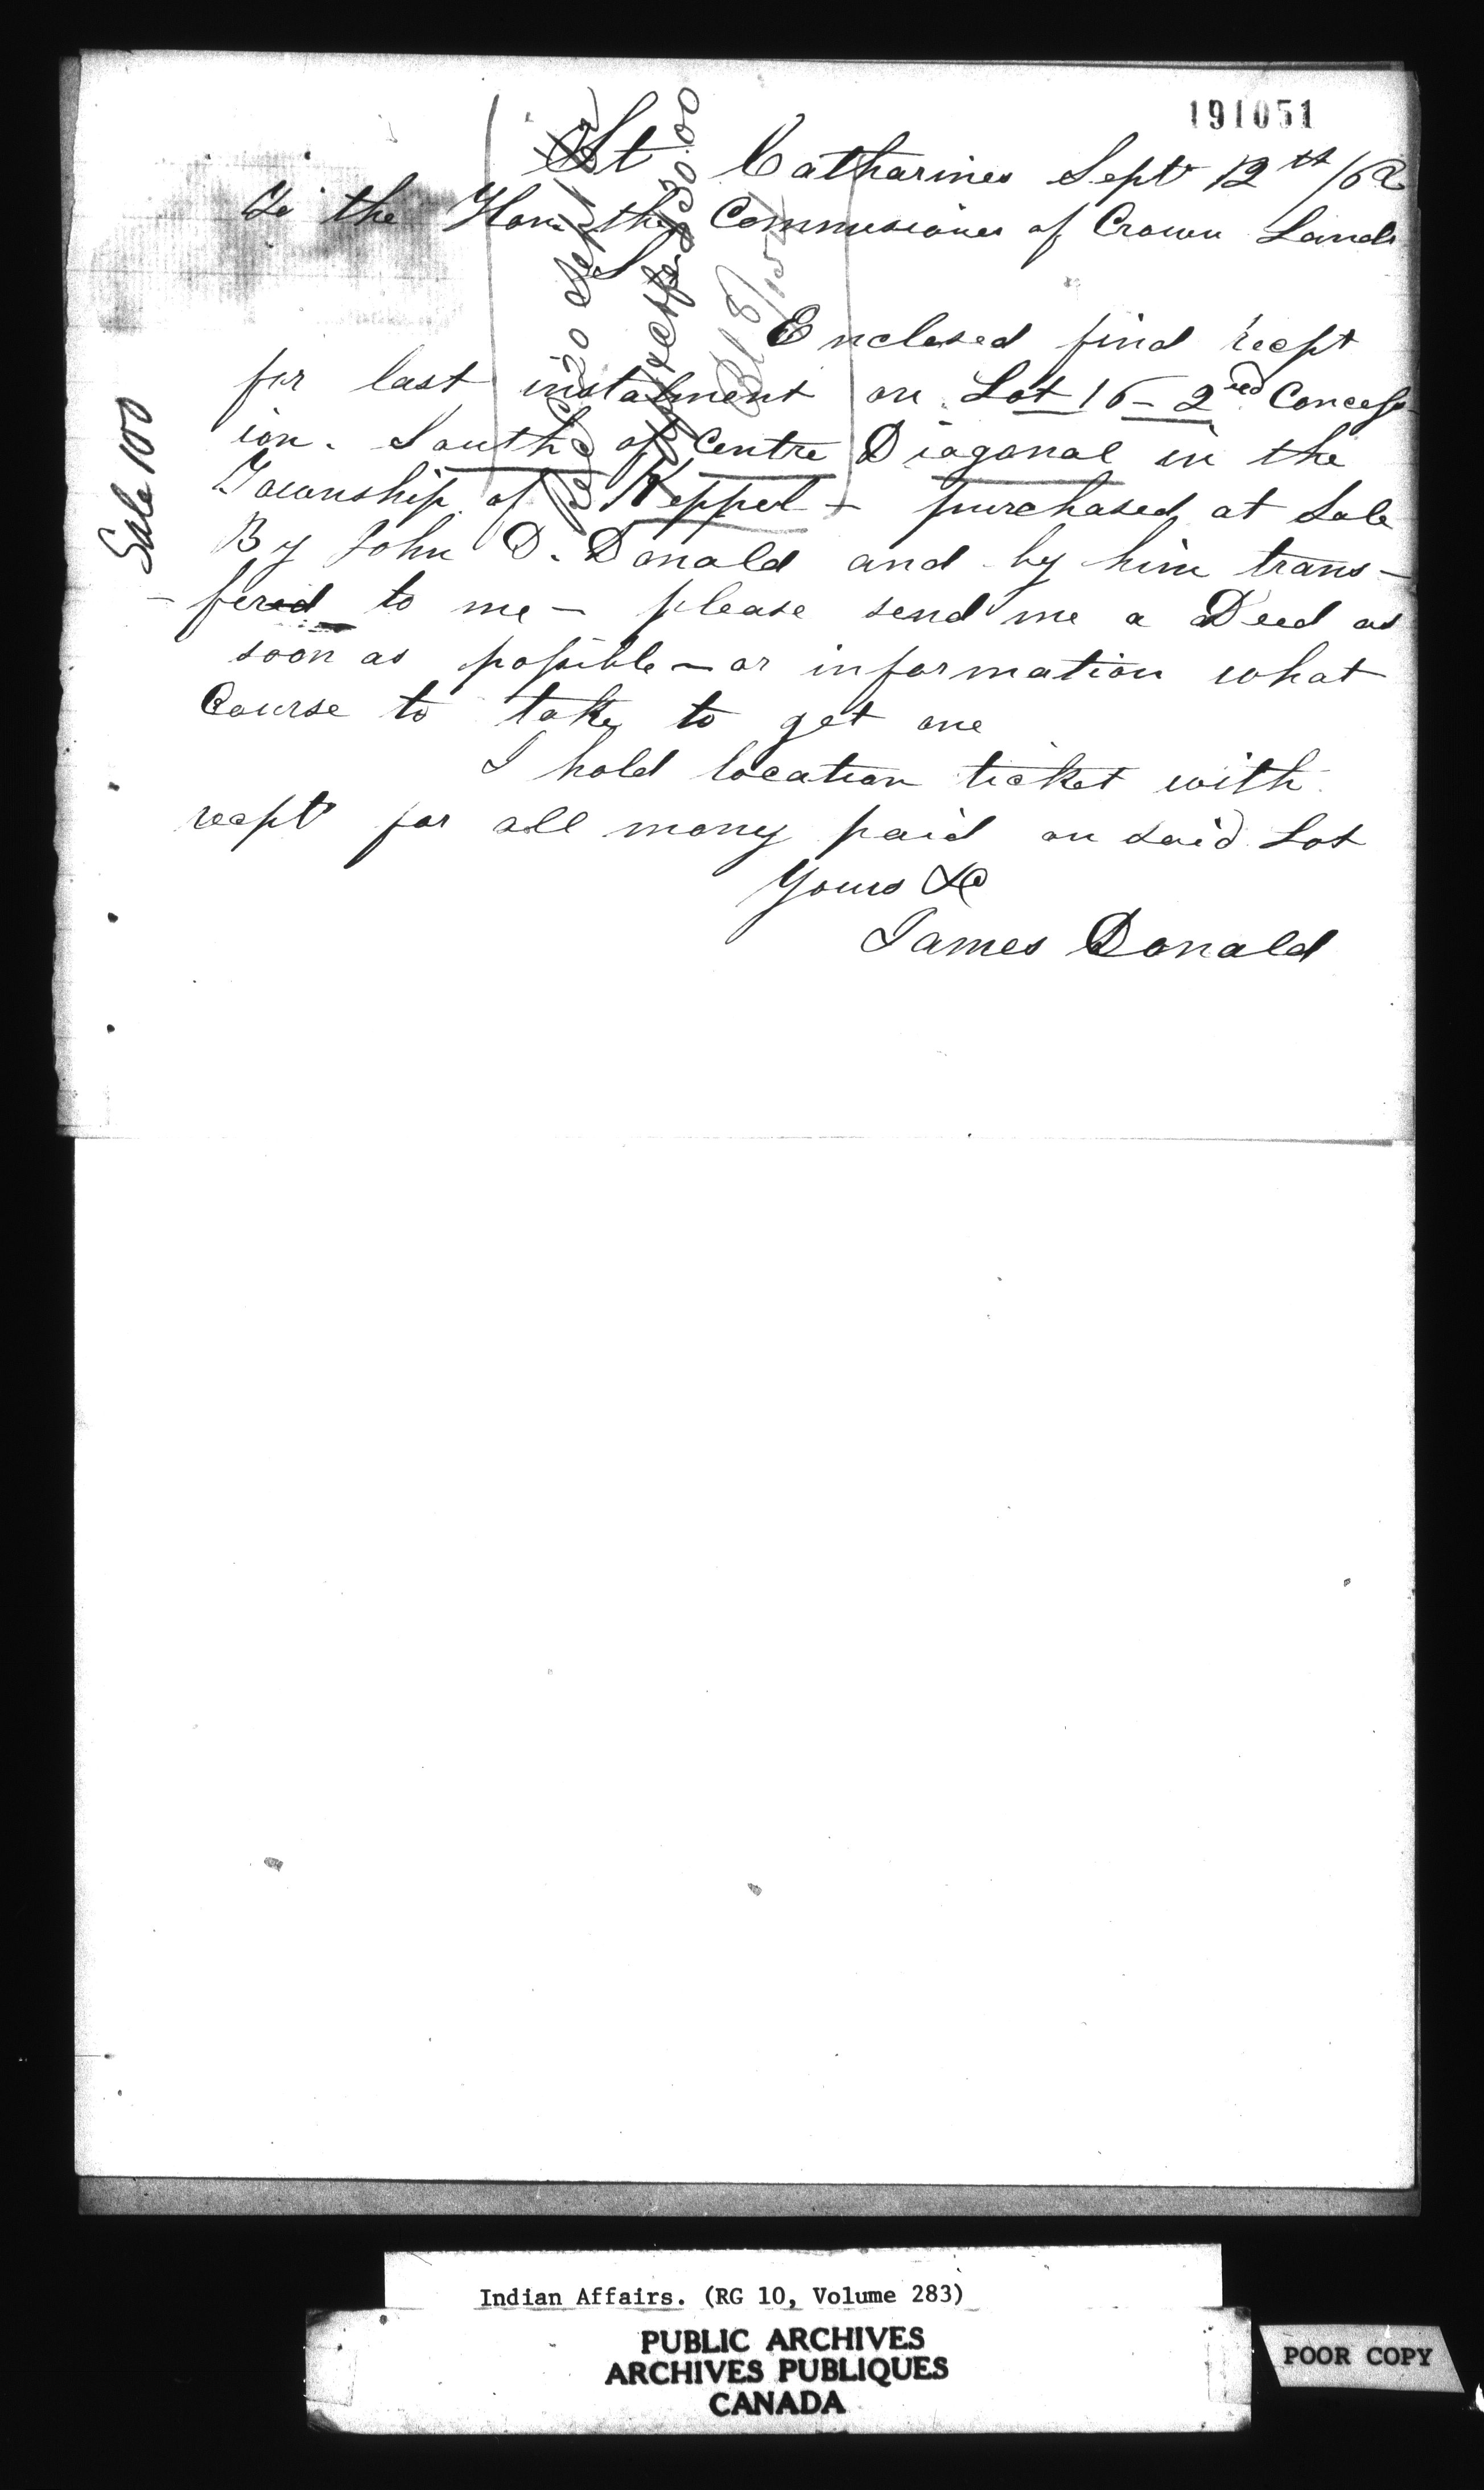 191051
St Catharines Sept 12th /62
To the Hon. the Commissioner of Crown Lands
Sir
Enclosed find recept
for last instalment on Lot 16 - 2nd Concess
ion. South of Centre Diagonal in the
Township of Keppel - purchased at Sale
By John D. Donald and by him trans-
-fered to me - please send me a Deed as
soon as possible - or information what
Course to take to get one
I hold location ticket with
recept for all mony paid on said Lot
Yours &c
James Donald
Sale 100
Recd 20 Sept
$30.00
Indian Affairs. (RG 10, Volume 283)
PUBLIC ARCHIVES
ARCHIVES PUBLIQUES
CANADA
POOR COPY